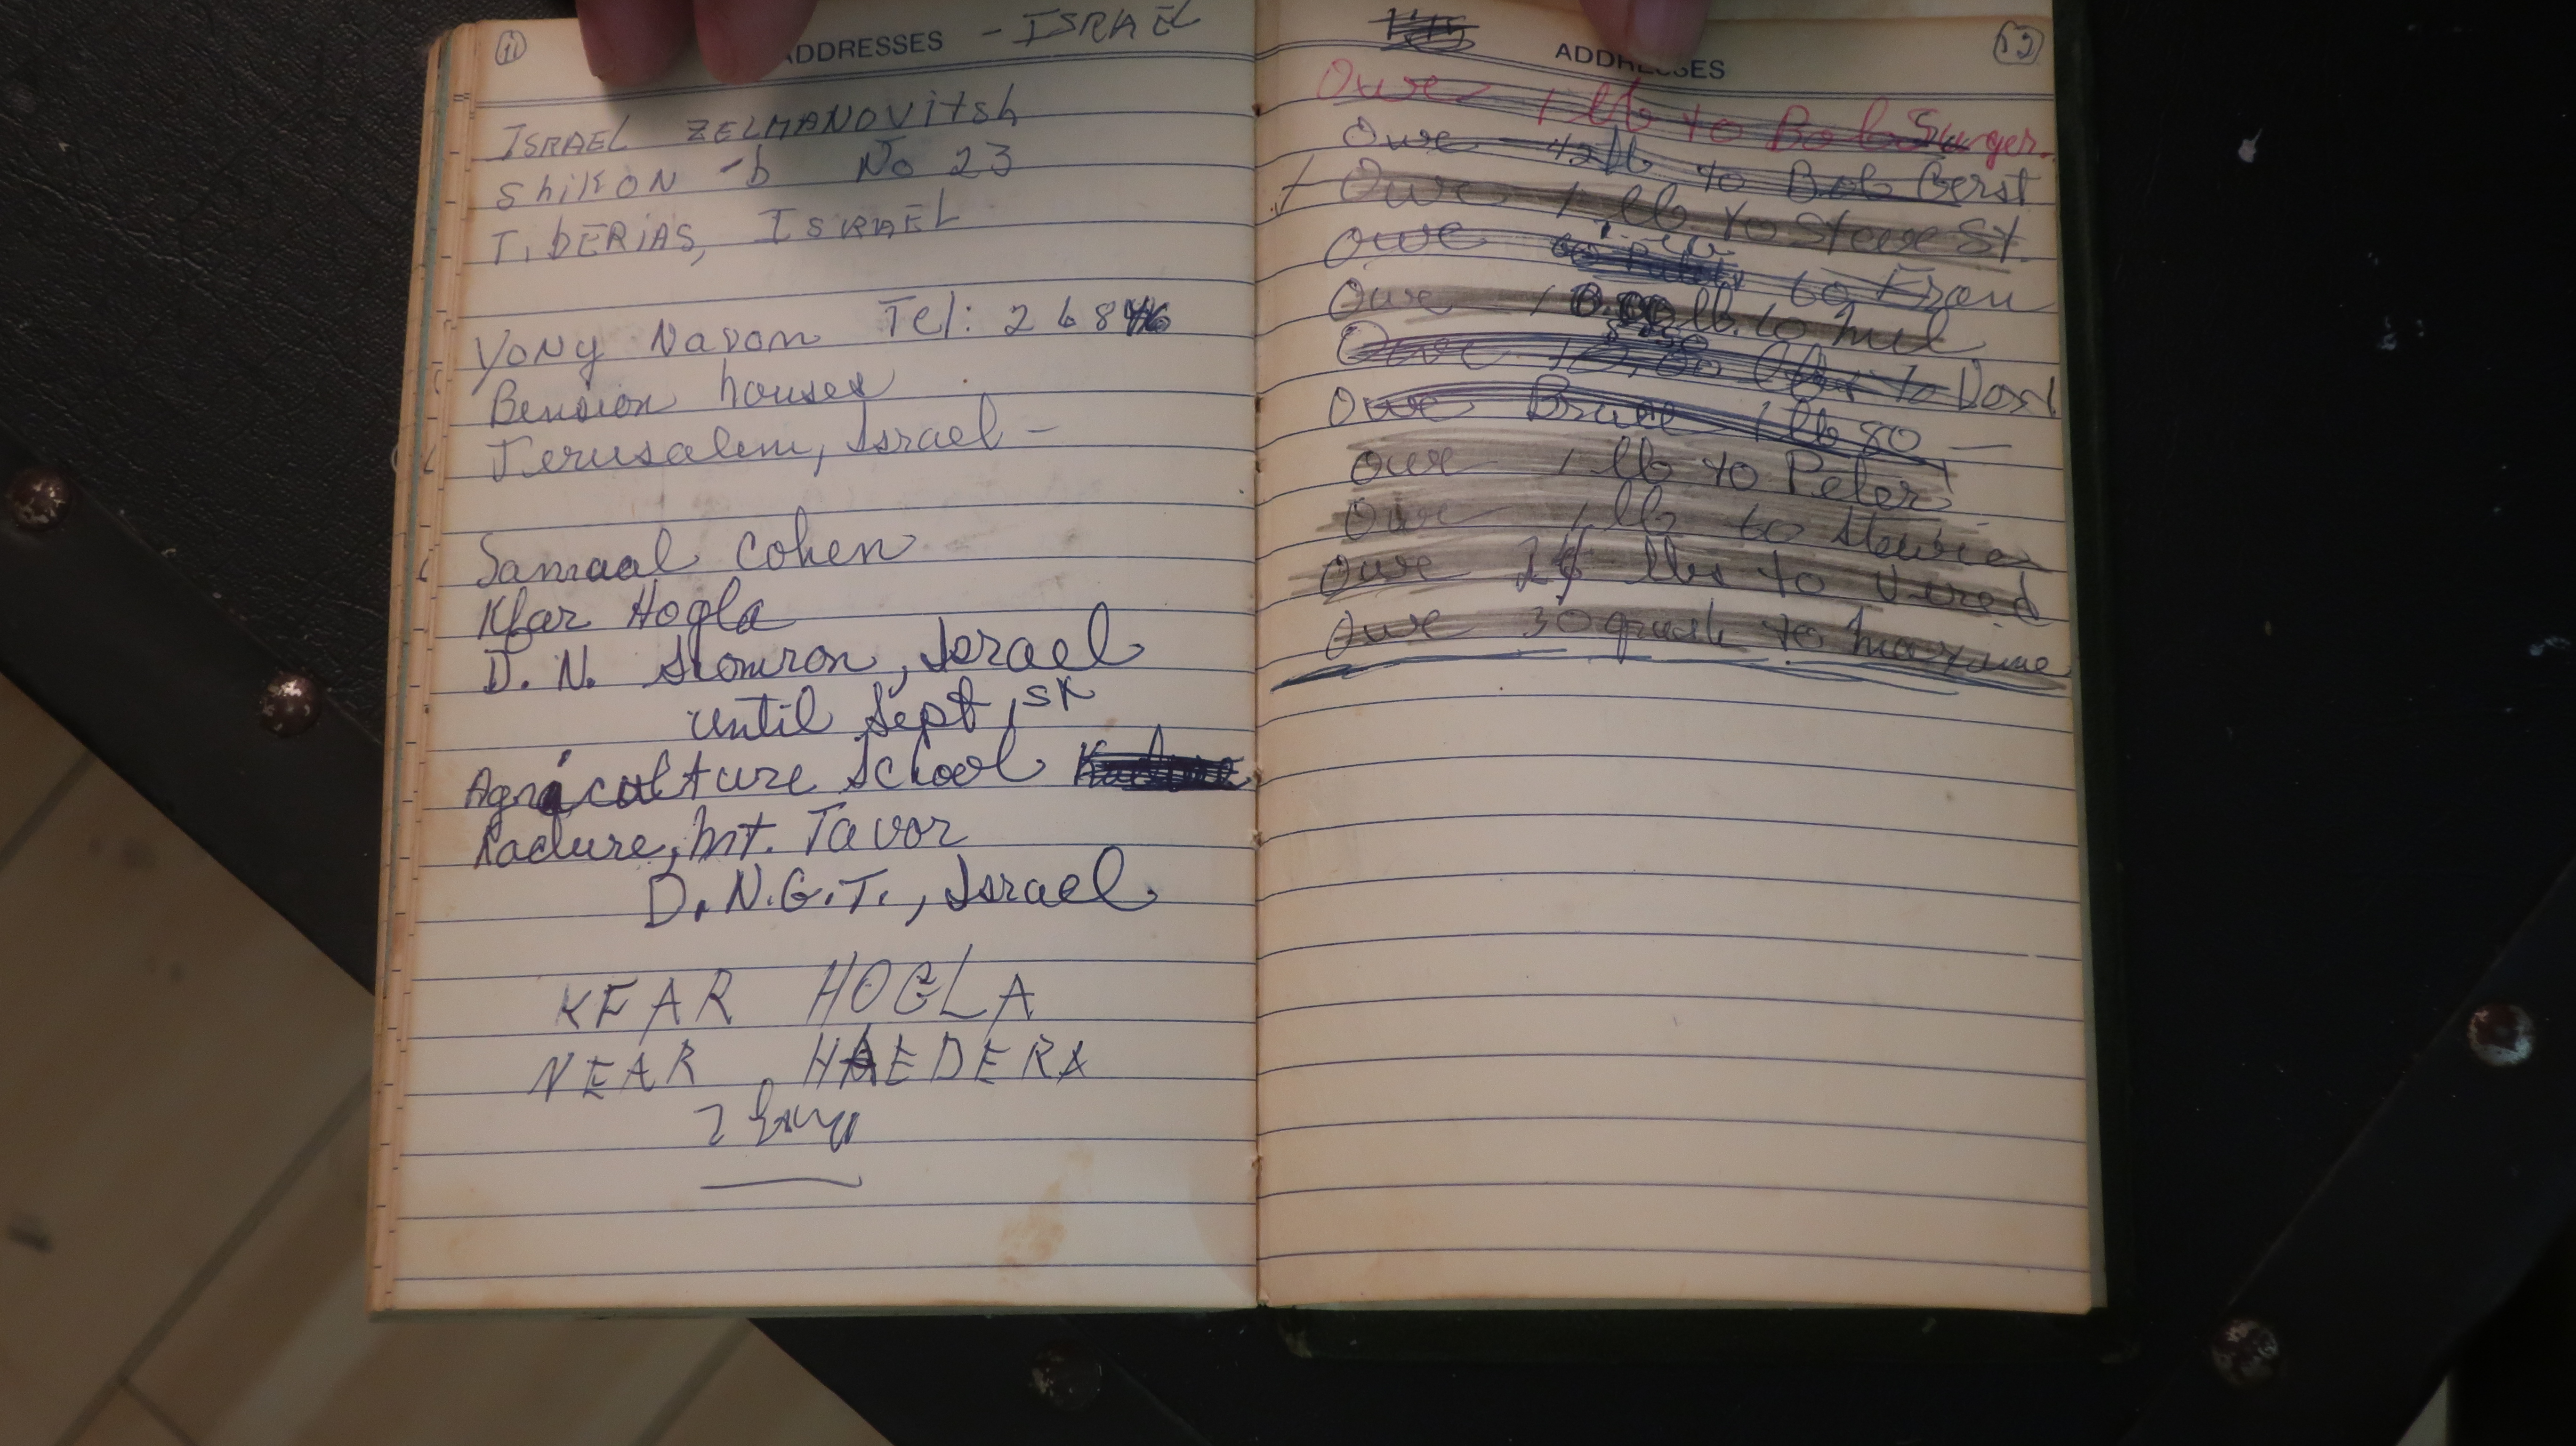 11
ADDRESSES - ISRAEL
ISRAEL ZELMANOVITSH
ShiKON -b No 23
TIbERIAS, ISRAEL
YONy Navon Tel: 268
Bension houses
Jerusalem, Israel -
Samaal Cohen
Kfar Hogla
D. N. Slomron, Israel
until Sept 1st
Agriculture School
Kadure, Mt. Tavor
D.N.G.T., Israel
KFAR HOGLA
NEAR HAEDERA
ADDRESSES
Owe 1 lb to Bob Sunger.
Owe lb to Bob Gerst
Owe 1 lb to Steve St.
Owe to Fran
Owe lb. to Mel
Owe to
Owe Bruce 1 lb 80 —
Owe 1 lb to Peter
Owe 1 lb to
Owe lbs to Vered
Owe 30 grush to Maxine